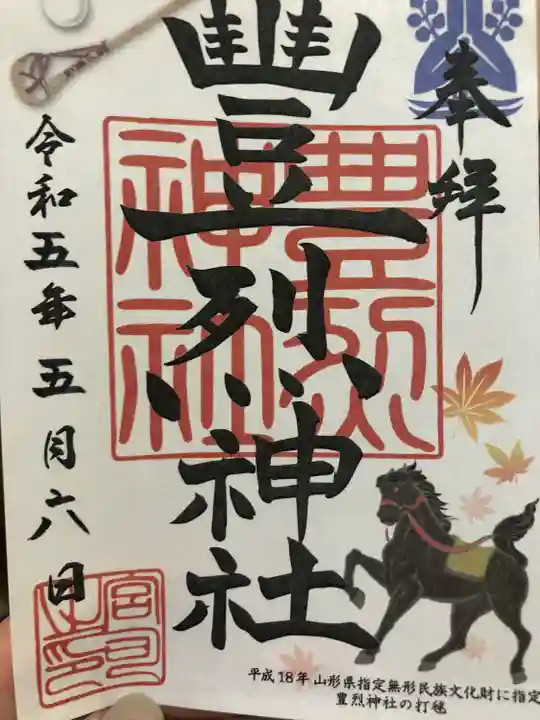 奉拝
豐烈神社
豊烈神社
令和五年五月六日
宮司之印
平成18年山形県指定無形民族文化財に指定
豊烈神社の打毬